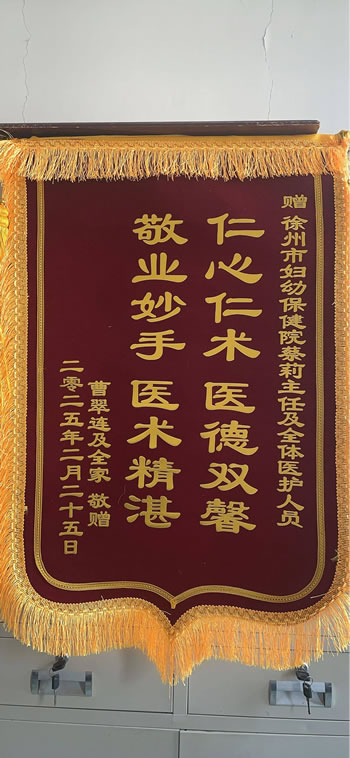 赠 徐州市妇幼保健院蔡莉主任及全体医护人员
仁心仁术 医德双馨
敬业妙手 医术精湛
曹翠连及全家 敬赠
二零二五年二月二十五日